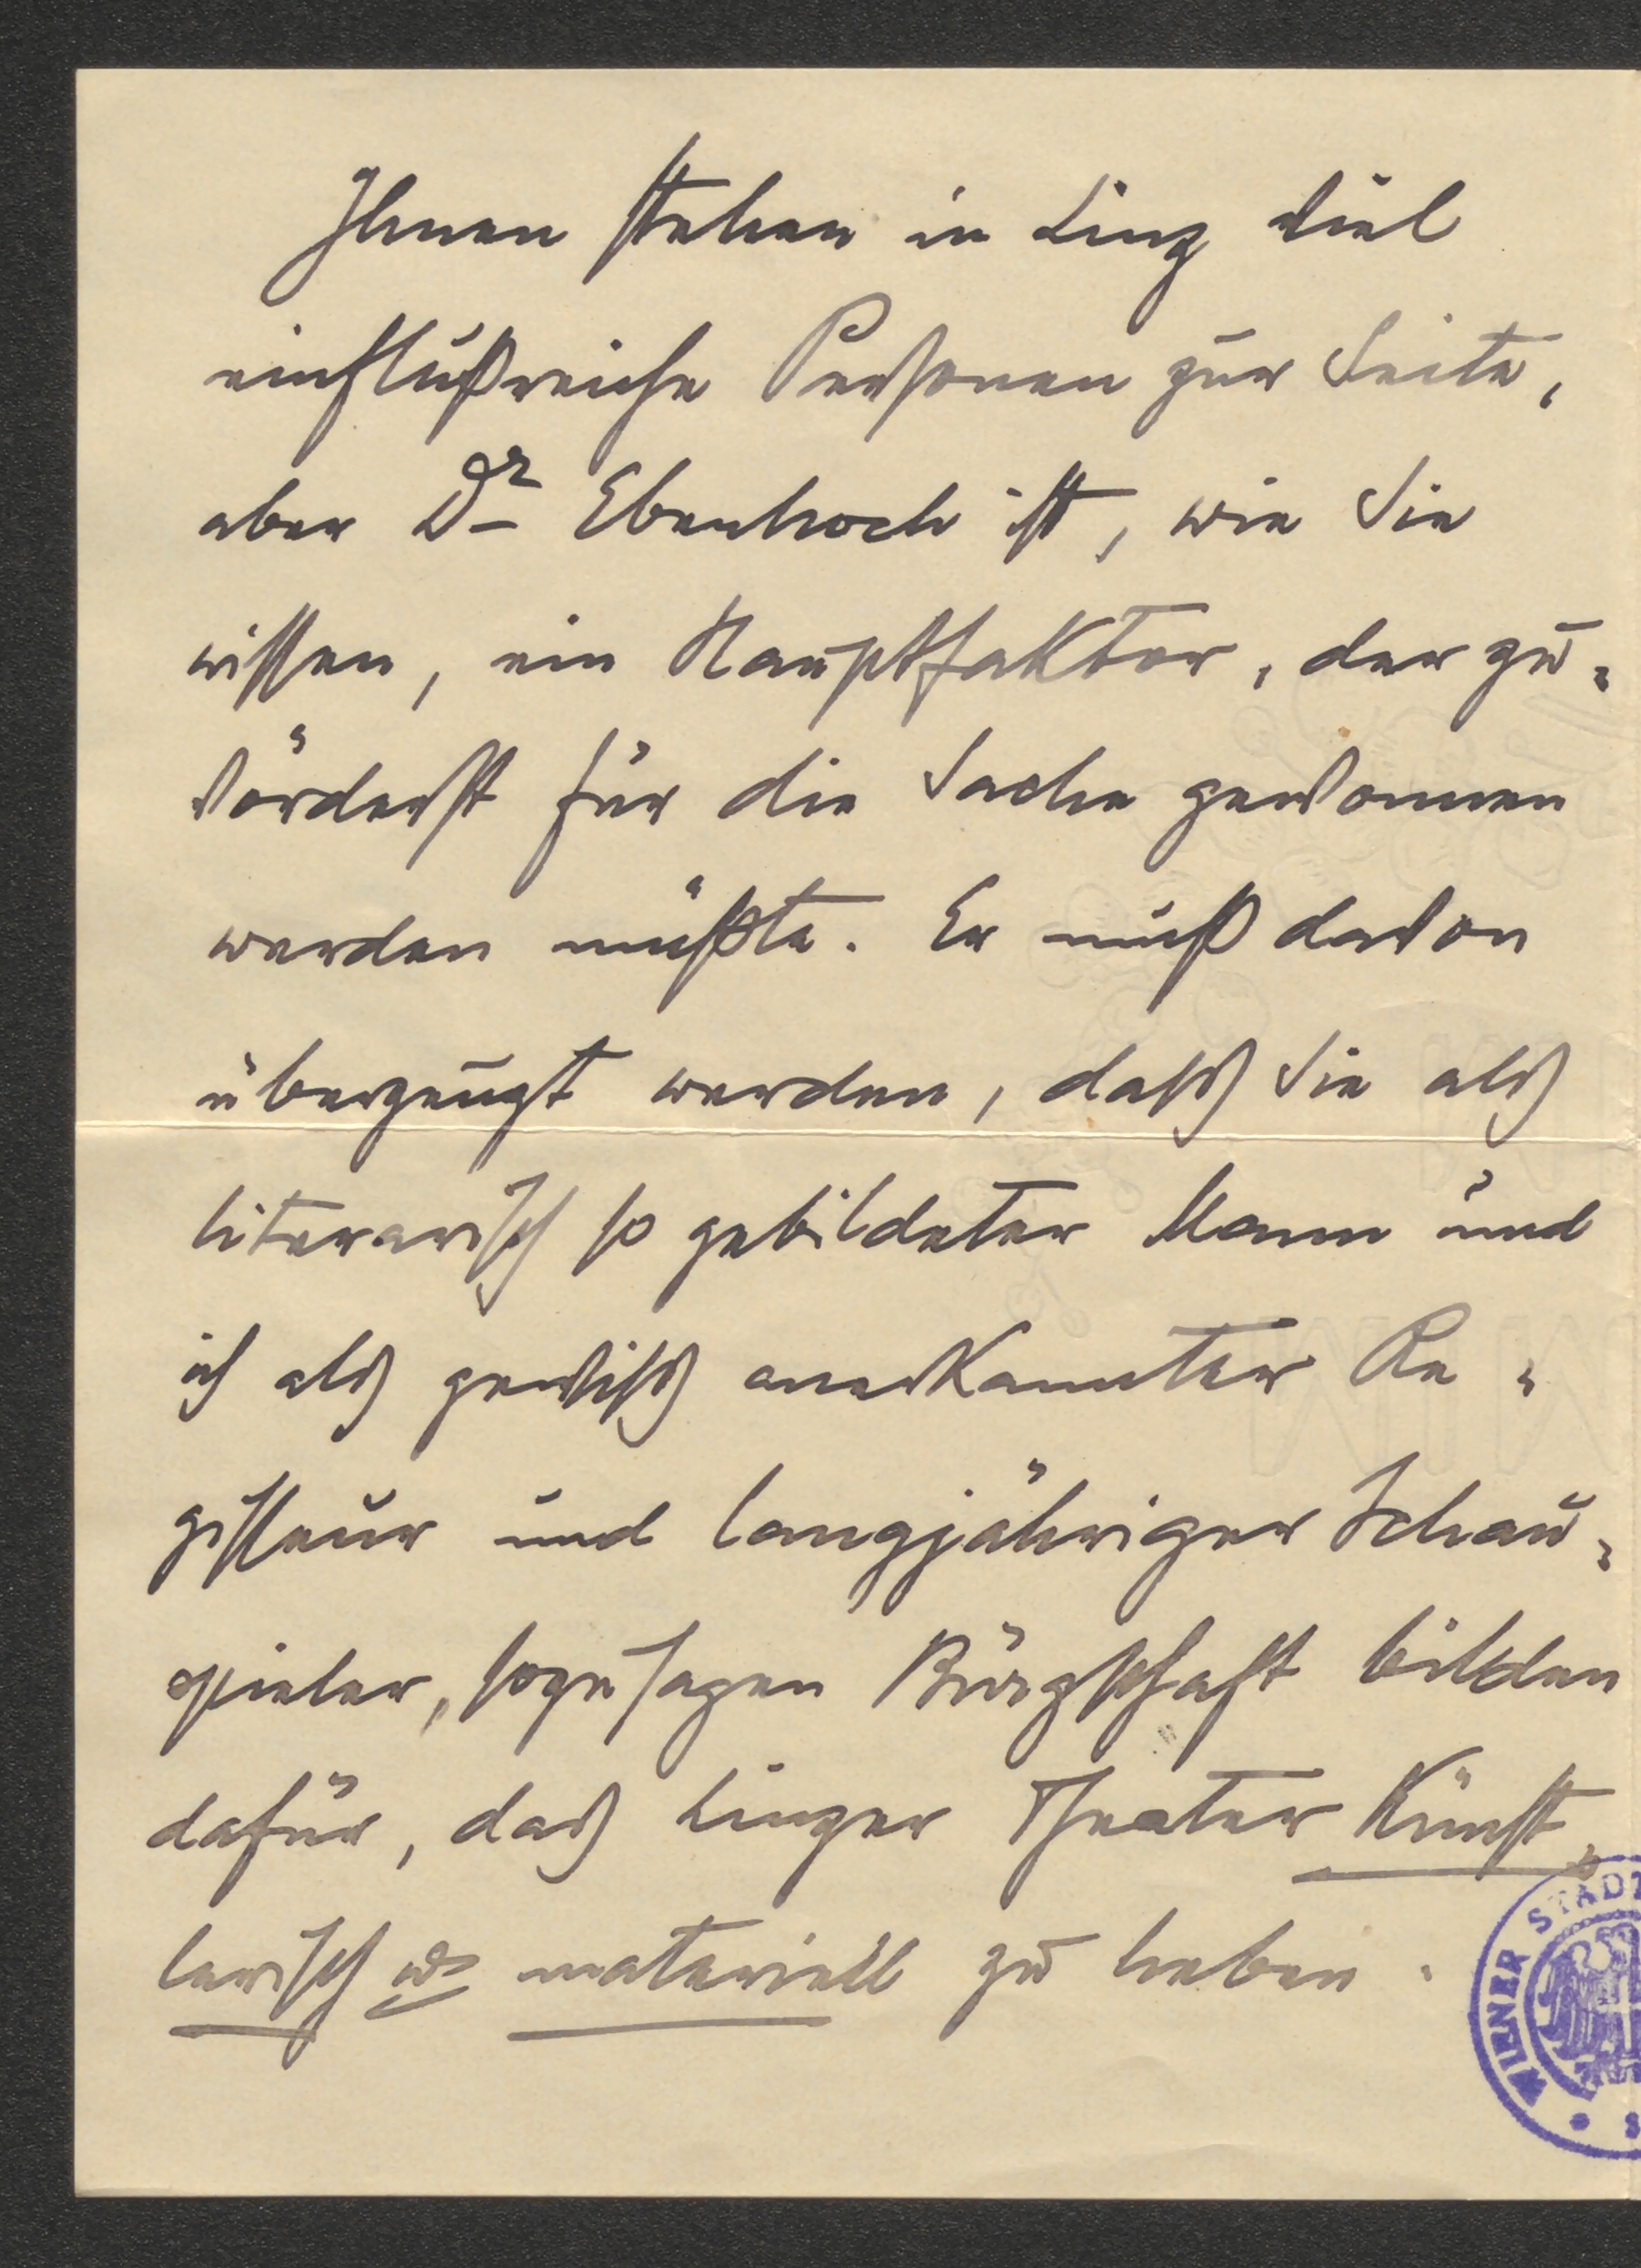 Ihnen stehen in Linz viel
einflußreiche Personen zur Seite,
aber Dr Ebenhoch ist, wie Sie
wissen, ein Hauptfaktor, der zu-
vörderst für die Sache gewonnen
werden müßte. Er muß davon
überzeugt werden, dass Sie als
literarisch so gebildeter Mann und
ich als gewiss anerkannter Re-
gisseur und langjähriger Schau-
spieler, sozusagen Bürgschaft bilden
dafür, das Linzer Theater künst-
lerisch u materiell zu heben.
WIENER STADT
S